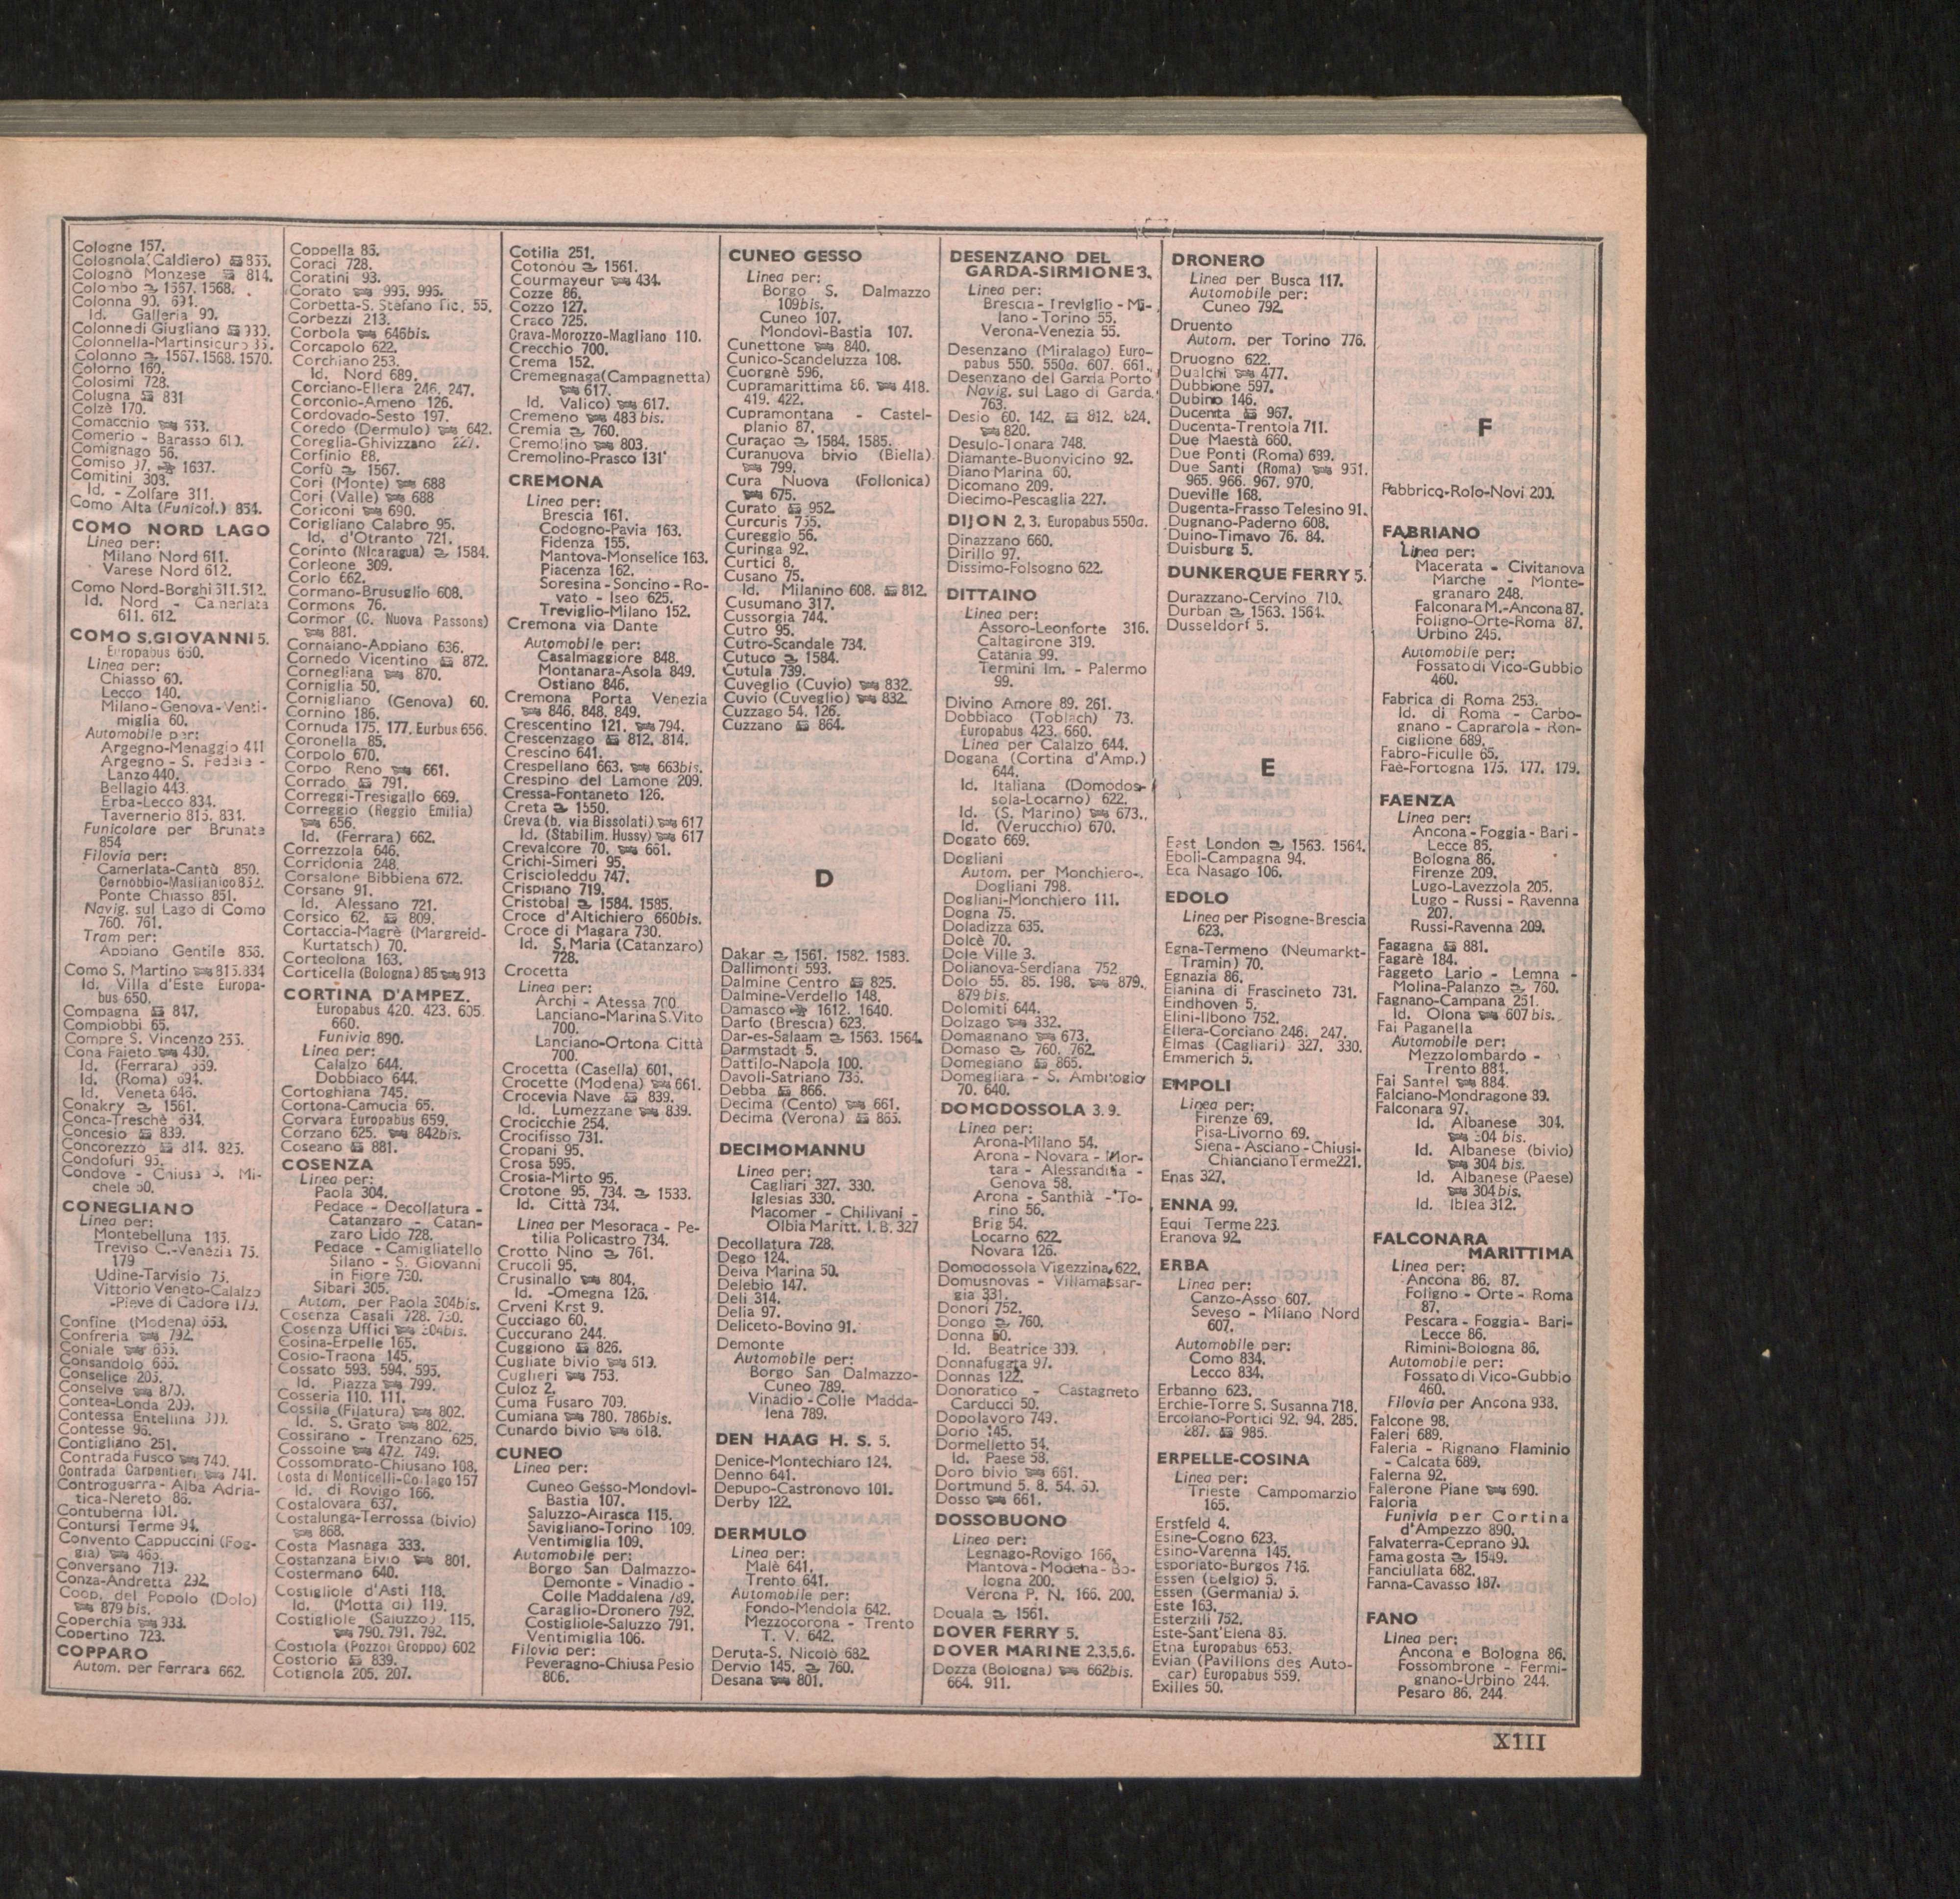 Cologne 157.
Colognola (Caldiero) 835.
Cologno Monzese 814.
Colombo 1567. 1568.
Colonna 90. 691.
Id. Galleria 90.
Colonne di Giugliano 930.
Colonnella-Martinsicuro 85.
Colonno 1567. 1568. 1570.
Colorno 169.
Colosimi 728.
Colugna 831
Colzè 170.
Comacchio 333.
Comerio - Barasso 610.
Comignago 56.
Comiso 97. 1637.
Comitini 303.
Id. - Zolfare 311.
Como Alta (Funicol.) 854.
COMO NORD LAGO
Linea per:
Milano Nord 611.
Varese Nord 612.
Como Nord-Borghi 611.612.
Id. Nord - Camerlata
611. 612.
COMO S. GIOVANNI 5.
Europabus 650.
Linea per:
Chiasso 60.
Lecco 140.
Milano-Genova-Venti-
miglia 60.
Automobile per:
Argegno-Menaggio 441
Argegno - S. Fedele -
Lanzo 440.
Bellagio 443.
Erba-Lecco 834.
Tavernerio 815. 834.
Funicolare per Brunate
854
Filovia per:
Camerlata-Cantù 850.
Cernobbio-Maslianico 852.
Ponte Chiasso 851.
Navig. sul Lago di Como
760. 761.
Tram per:
Appiano Gentile 856.
Como S. Martino 815.834
Id. Villa d'Este Europa-
bus 650.
Compagna 847.
Compiobbi 65.
Compre S. Vincenzo 255.
Cona Faieto 430.
Id. (Ferrara) 669.
Id. (Roma) 694.
Id. Veneta 646.
Conakry 1561.
Conca-Treschè 634.
Concesio 839.
Concorezzo 814. 825.
Condofuri 95.
Condove - Chiusa S. Mi-
chele 50.
CONEGLIANO
Linea per:
Montebelluna 185.
Treviso C.-Venezia 75.
179
Udine-Tarvisio 75.
Vittorio Veneto-Calalzo
-Pieve di Cadore 179.
Confine (Modena) 653.
Confreria 792.
Coniale 655.
Consandolo 665.
Conselice 205.
Conselve 870.
Contea-Londa 209.
Contessa Entellina 309.
Contesse 95.
Contigliano 251.
Contrada Fusco 740.
Contrada Carpentieri 741.
Controguerra - Alba Adria-
tica-Nereto 85.
Contuberna 101.
Contursi Terme 94.
Convento Cappuccini (Fog-
gia) 465.
Conversano 719.
Conza-Andretta 292.
Coop. del Popolo (Dolo)
879 bis.
Coperchia 933.
Copertino 723.
COPPARO
Autom. per Ferrara 662.
Coppella 85.
Coraci 728.
Coratini 93.
Corato 995. 996.
Corbetta-S. Stefano Tic. 55.
Corbezzi 213.
Corbola 646bis.
Corcapolo 622.
Corchiano 253.
Id. Nord 689.
Corciano-Ellera 246. 247.
Corconio-Ameno 126.
Cordovado-Sesto 197.
Coredo (Dermulo) 642.
Coreglia-Ghivizzano 227.
Corfinio 88.
Corfù 1567.
Cori (Monte) 688
Cori (Valle) 688
Coriconi 690.
Corigliano Calabro 95.
Id. d'Otranto 721.
Corinto (Nicaragua) 1584.
Corleone 309.
Corlo 662.
Cormano-Brusuglio 608.
Cormons 76.
Cormor (C. Nuova Passons)
881.
Cornaiano-Appiano 636.
Cornedo Vicentino 872.
Cornegliana 870.
Corniglia 50.
Cornigliano (Genova) 60.
Cornino 186.
Cornuda 175. 177. Eurbus 656.
Coronella 85.
Corpolo 670.
Corpo Reno 661.
Corrado 791.
Correggi-Tresigallo 669.
Correggio (Reggio Emilia)
656.
Id. (Ferrara) 662.
Correzzola 646.
Corridonia 248.
Corsalone Bibbiena 672.
Corsano 91.
Id. Alessano 721.
Corsico 62. 809.
Cortaccia-Magrè (Margreid-
Kurtatsch) 70.
Corteolona 163.
Corticella (Bologna) 85 913
CORTINA D'AMPEZ.
Europabus 420. 423. 605.
660.
Funivia 890.
Linea per:
Calalzo 644.
Dobbiaco 644.
Cortoghiana 745.
Cortona-Camucia 65.
Corvara Europabus 659.
Corzano 625. 842bis.
Coseano 881.
COSENZA
Linea per:
Paola 304.
Pedace - Decollatura -
Catanzaro - Catan-
zaro Lido 728.
Pedace - Camigliatello
Silano - S. Giovanni
in Fiore 730.
Sibari 305.
Autom. per Paola 304bis.
Cosenza Casali 728. 730.
Cosenza Uffici 304bis.
Cosina-Erpelle 165.
Cosio-Traona 145.
Cossato 593. 594. 595.
Id. Piazza 799.
Cosseria 110. 111.
Cossila (Filatura) 802.
Id. S. Grato 802.
Cossirano - Trenzano 625.
Cossoine 472. 749.
Cossombrato-Chiusano 108.
Costa di Monticelli-Co.lago 157
Id. di Rovigo 166.
Costalovara 637.
Costalunga-Terrossa (bivio)
868.
Costa Masnaga 333.
Costanzana Bivio 801.
Costermano 640.
Costigliole d'Asti 118.
Id. (Motta di) 119.
Costigliole (Saluzzo) 115.
790. 791. 792.
Costiola (Pozzol Groppo) 602
Costorio 839.
Cotignola 205. 207.
Cotilia 251.
Cotonou 1561.
Courmayeur 434.
Cozze 86.
Cozzo 127.
Craco 725.
Crava-Morozzo-Magliano 110.
Crecchio 700.
Crema 152.
Cremegnaga (Campagnetta)
617.
Id. Valico) 617.
Cremeno 483 bis.
Cremia 760.
Cremolino 803.
Cremolino-Prasco 131
CREMONA
Linea per:
Brescia 161.
Codogno-Pavia 163.
Fidenza 155.
Mantova-Monselice 163.
Piacenza 162.
Soresina-Soncino-Ro-
vato - Iseo 625.
Treviglio-Milano 152.
Cremona via Dante
Automobile per:
Casalmaggiore 848.
Montanara-Asola 849.
Ostiano 846.
Cremona Porta Venezia
846. 848. 849.
Crescentino 121. 794.
Crescenzago 812. 814.
Crescino 641.
Crespellano 663. 663bis.
Crespino del Lamone 209.
Cressa-Fontaneto 126.
Creta 1550.
Creva (b. via Bissolati) 617
Id. (Stabilim. Hussy) 617
Crevalcore 70. 661.
Crichi-Simeri 95.
Criscioleddu 747.
Crispiano 719.
Cristobal 1584. 1585.
Croce d'Altichiero 660bis.
Croce di Magara 730.
Id. S. Maria (Catanzaro)
728.
Crocetta
Linea per:
Archi - Atessa 700.
Lanciano-Marina S. Vito
700.
Lanciano-Ortona Città
700.
Crocetta (Casella) 601.
Crocette (Modena) 661.
Crocevia Nave 839.
Id. Lumezzane 839.
Crocicchie 254.
Crocifisso 731.
Cropani 95.
Crosa 595.
Crosia-Mirto 95.
Crotone 95. 734. 1533.
Id. Città 734.
Linea per Mesoraca - Pe-
tilia Policastro 734.
Crotto Nino 761.
Crucoli 95.
Crusinallo 804.
Id. -Omegna 126.
Crveni Krst 9.
Cucciago 60.
Cuccurano 244.
Cuggiono 826.
Cugliate bivio 619.
Cuglieri 753.
Culoz 2.
Cuma Fusaro 709.
Cumiana 780. 786bis.
Cunardo bivio 618.
CUNEO
Linea per:
Cuneo Gesso-Mondovì-
Bastia 107.
Saluzzo-Airasca 115.
Savigliano-Torino 109.
Ventimiglia 109.
Automobile per:
Borgo San Dalmazzo-
Demonte - Vinadio -
Colle Maddalena 789.
Caraglio-Dronero 792.
Costigliole-Saluzzo 791.
Ventimiglia 106.
Filovia per:
Peveragno-Chiusa Pesio
806.
CUNEO GESSO
Linea per:
Borgo S. Dalmazzo
109bis.
Cuneo 107.
Mondovì-Bastia 107.
Cunettone 840.
Cunico-Scandeluzza 108.
Cuorgnè 596.
Cupramarittima 86. 418.
419. 422.
Cupramontana - Castel-
planio 87.
Curaçao 1584. 1585.
Curanuova bivio (Biella)
799.
Cura Nuova (Follonica)
675.
Curato 952.
Curcuris 755.
Cureggio 56.
Curinga 92.
Curtici 8.
Cusano 75.
Id. Milanino 608. 812.
Cusumano 317.
Cussorgia 744.
Cutro 95.
Cutro-Scandale 734.
Cutuco 1584.
Cutula 739.
Cuveglio (Cuvio) 832.
Cuvio (Cuveglio) 832.
Cuzzago 54. 126.
Cuzzano 864.
D
Dakar 1561. 1582. 1583.
Dallimonti 593.
Dalmine Centro 825.
Dalmine-Verdello 148.
Damasco 1612. 1640.
Darfo (Brescia) 623.
Dar-es-Salaam 1563. 1564.
Darmstadt 5.
Dattilo-Napola 100.
Davoli-Satriano 735.
Debba 866.
Decima (Cento) 661.
Decima (Verona) 865.
DECIMOMANNU
Linea per:
Cagliari 327. 330.
Iglesias 330.
Macomer - Chilivani -
Olbia Maritt. I. B. 327
Decollatura 728.
Dego 124.
Deiva Marina 50.
Delebio 147.
Deli 314.
Delia 97.
Deliceto-Bovino 91.
Demonte
Automobile per:
Borgo San Dalmazzo-
Cuneo 789.
Vinadio - Colle Madda-
lena 789.
DEN HAAG H. S. 5.
Denice-Montechiaro 124.
Denno 641.
Depupo-Castronovo 101.
Derby 122.
DERMULO
Linea per:
Malè 641.
Trento 641.
Automobile per:
Fondo-Mendola 642.
Mezzocorona - Trento
T. V. 642.
Deruta-S. Nicolò 682.
Dervio 145. 760.
Desana 801.
DESENZANO DEL
GARDA-SIRMIONE 3.
Linea per:
Brescia - Treviglio - Mi-
lano - Torino 55.
Verona-Venezia 55.
Desenzano (Miralago) Euro-
pabus 550. 550a. 607. 661.
Desenzano del Garda Porto
Navig. sul Lago di Garda
763.
Desio 60. 142. 812. 824.
820.
Desulo-Tonara 748.
Diamante-Buonvicino 92.
Diano Marina 60.
Dicomano 209.
Diecimo-Pescaglia 227.
DIJON 2,3. Europabus 550a.
Dinazzano 660.
Dirillo 97.
Dissimo-Folsogno 622.
DITTAINO
Linea per:
Assoro-Leonforte 316.
Caltagirone 319.
Catania 99.
Termini Im. - Palermo
99.
Divino Amore 89. 261.
Dobbiaco (Toblach) 73.
Europabus 423. 660.
Linea per Calalzo 644.
Dogana (Cortina d'Amp.)
644.
Id. Italiana (Domodos-
sola-Locarno) 622.
Id. (S. Marino) 673.
Id. (Verucchio) 670.
Dogato 669.
Dogliani
Autom. per Monchiero-
Dogliani 798.
Dogliani-Monchiero 111.
Dogna 75.
Doladizza 635.
Dolcè 70.
Dole Ville 3.
Dolianova-Serdiana 752
Dolo 55. 85. 198. 879.
879 bis.
Dolomiti 644.
Dolzago 332.
Domagnano 673.
Domaso 760. 762.
Domegiano 865.
Domegliara - S. Ambrogio
70. 640.
DOMODOSSOLA 3. 9.
Linea per:
Arona-Milano 54.
Arona - Novara - Mor-
tara - Alessandria -
Genova 58.
Arona - Santhià - To-
rino 56.
Brig 54.
Locarno 622
Novara 126.
Domodossola Vigezzina 622.
Domusnovas - Villamassar-
gia 331.
Donori 752.
Dongo 760.
Donna 50.
Id. Beatrice 309.
Donnafugata 97.
Donnas 122.
Donoratico - Castagneto
Carducci 50.
Dopolavoro 749.
Dorio 145.
Dormelletto 54.
Id. Paese 58.
Doro bivio 661.
Dortmund 5. 8. 54. 60.
Dosso 661.
DOSSOBUONO
Linea per:
Legnago-Rovigo 166.
Mantova-Modena-Bo-
logna 200.
Verona P. N. 166. 200.
Douala 1561.
DOVER FERRY 5.
DOVER MARINE 2,3,5,6.
Dozza (Bologna) 662bis.
664. 911.
DRONERO
Linea per Busca 117.
Automobile per:
Cuneo 792.
Druento
Autom. per Torino 776.
Druogno 622.
Dualchi 477.
Dubbione 597.
Dubino 146.
Ducenta 967.
Ducenta-Trentola 711.
Due Maestà 660.
Due Ponti (Roma) 689.
Due Santi (Roma) 951.
965. 966. 967. 970.
Dueville 168.
Dugenta-Frasso Telesino 91.
Dugnano-Paderno 608.
Duino-Timavo 76. 84.
Duisburg 5.
DUNKERQUE FERRY 5.
Durazzano-Cervino 710.
Durban 1563. 1564.
Dusseldorf 5.
E
East London 1563. 1564.
Eboli-Campagna 94.
Eca Nasago 106.
EDOLO
Linea per Pisogne-Brescia
623.
Egna-Termeno (Neumarkt-
Tramin) 70.
Egnazia 86.
Eianina di Frascineto 731.
Eindhoven 5.
Elini-Ilbono 752.
Ellera-Corciano 246. 247.
Elmas (Cagliari) 327. 330.
Emmerich 5.
EMPOLI
Linea per:
Firenze 69.
Pisa-Livorno 69.
Siena - Asciano - Chiusi-
Chianciano Terme 221.
Enas 327.
ENNA 99.
Equi Terme 223.
Eranova 92.
ERBA
Linea per:
Canzo-Asso 607.
Seveso - Milano Nord
607.
Automobile per:
Como 834.
Lecco 834.
Erbanno 623.
Erchie-Torre S. Susanna 718.
Ercolano-Portici 92. 94. 285.
287. 985.
ERPELLE-COSINA
Linea per:
Trieste Campomarzio
165.
Erstfeld 4.
Esine-Cogno 623.
Esino-Varenna 145.
Esporlato-Burgos 746.
Essen (Belgio) 5.
Essen (Germania) 5.
Este 163.
Esterzili 752.
Este-Sant'Elena 85.
Etna Europabus 653.
Evian (Pavillons des Auto-
car) Europabus 559.
Exilles 50.
F
Fabbrico-Rolo-Novi 200.
FABRIANO
Linea per:
Macerata - Civitanova
Marche - Monte-
granaro 248.
Falconara M.-Ancona 87.
Foligno-Orte-Roma 87.
Urbino 245.
Automobile per:
Fossato di Vico-Gubbio
460.
Fabrica di Roma 253.
Id. di Roma - Carbo-
gnano - Caprarola - Ron-
ciglione 689.
Fabro-Ficulle 65.
Faè-Fortogna 175. 177. 179.
FAENZA
Linea per:
Ancona - Foggia - Bari -
Lecce 85.
Bologna 86.
Firenze 209.
Lugo-Lavezzola 205.
Lugo - Russi - Ravenna
207.
Russi-Ravenna 209.
Fagagna 881.
Fagarè 184.
Faggeto Lario - Lemna -
Molina-Palanzo 760.
Fagnano-Campana 251.
Id. Olona 607 bis.
Fai Paganella
Automobile per:
Mezzolombardo -
Trento 884.
Fai Santel 884.
Falciano-Mondragone 89.
Falconara 97.
Id. Albanese 304.
304 bis.
Id. Albanese (bivio)
304 bis.
Id. Albanese (Paese)
304 bis.
Id. Iblea 312.
FALCONARA
MARITTIMA
Linea per:
Ancona 86. 87.
Foligno - Orte - Roma
87.
Pescara - Foggia - Bari-
Lecce 86.
Rimini-Bologna 86.
Automobile per:
Fossato di Vico-Gubbio
460.
Filovia per Ancona 938.
Falcone 98.
Faleri 689.
Faleria - Rignano Flaminio
- Calcata 689.
Falerna 92.
Falerone Piane 690.
Faloria
Funivia per Cortina
d'Ampezzo 890.
Falvaterra-Ceprano 90.
Famagosta 1549.
Fanciullata 682.
Fanna-Cavasso 187.
FANO
Linea per:
Ancona e Bologna 86.
Fossombrone - Fermi-
gnano-Urbino 244.
Pesaro 86. 244.
XIII